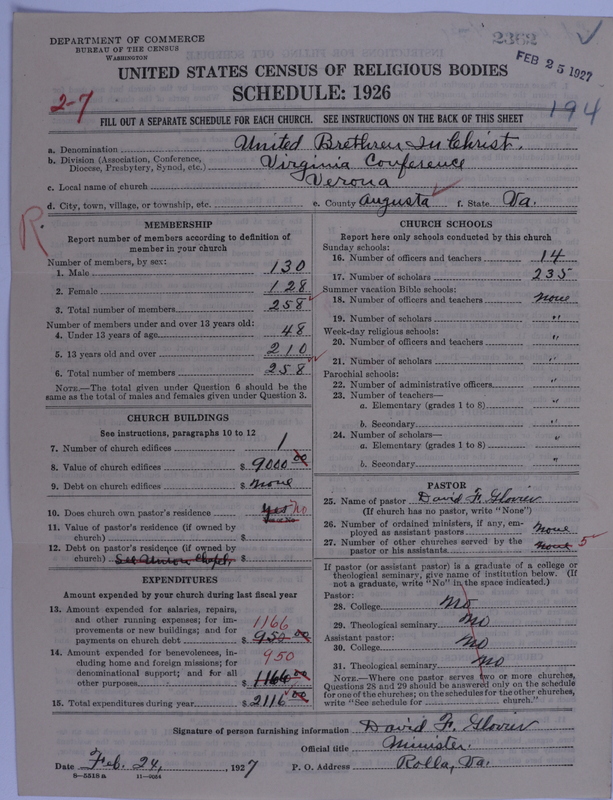 DEPARTMENT OF COMMERCE
BUREAU OF THE CENSUS
WASHINGTON
2362
FEB 25 1927
UNITED STATES CENSUS OF RELIGIOUS BODIES
SCHEDULE: 1926
2-7
194
FILL OUT A SEPARATE SCHEDULE FOR EACH CHURCH. SEE INSTRUCTIONS ON THE BACK OF THIS SHEET
a. Denomination United Brethren In Christ.
b. Division (Association, Conference, Diocese, Presbytery, Synod, etc.) Virginia Conference
c. Local name of church Verona
d. City, town, village, or township, etc. e. County Augusta f. State Va.
R.
MEMBERSHIP
Report number of members according to definition of
member in your church
Number of members, by sex:
1. Male 130
2. Female 128
3. Total number of members 258
Number of members under and over 13 years old:
4. Under 13 years of age 48
5. 13 years old and over 210
6. Total number of members 258
NOTE.—The total given under Question 6 should be the
same as the total of males and females given under Question 3.
CHURCH BUILDINGS
See instructions, paragraphs 10 to 12
7. Number of church edifices 1
8. Value of church edifices $ 9000 00
9. Debt on church edifices $ none
10. Does church own pastor's residence yes no
11. Value of pastor's residence (if owned by
church) $
12. Debt on pastor's residence (if owned by
church) See Union Chapel, $
EXPENDITURES
Amount expended by your church during last fiscal year
13. Amount expended for salaries, repairs,
and other running expenses; for im-
provements or new buildings; and for
payments on church debt $ 950 00 1166
14. Amount expended for benevolences, in-
cluding home and foreign missions; for
denominational support; and for all
other purposes $ 1166 00 950
15. Total expenditures during year $ 2116 00
CHURCH SCHOOLS
Report here only schools conducted by this church
Sunday schools:
16. Number of officers and teachers 14
17. Number of scholars 235
Summer vacation Bible schools:
18. Number of officers and teachers none
19. Number of scholars "
Week-day religious schools:
20. Number of officers and teachers "
21. Number of scholars "
Parochial schools:
22. Number of administrative officers "
23. Number of teachers—
a. Elementary (grades 1 to 8) "
b. Secondary "
24. Number of scholars—
a. Elementary (grades 1 to 8) "
b. Secondary "
PASTOR
25. Name of pastor David F. Glovier
(If church has no pastor, write "None")
26. Number of ordained ministers, if any, em-
ployed as assistant pastors none
27. Number of other churches served by the
pastor or his assistants none 5
If pastor (or assistant pastor) is a graduate of a college or
theological seminary, give name of institution below. (If
not a graduate, write "No" in the space indicated.)
Pastor:
28. College No
29. Theological seminary No
Assistant pastor:
30. College No
31. Theological seminary No
NOTE.—Where one pastor serves two or more churches,
Questions 28 and 29 should be answered only on the schedule
for one of the churches; on the schedules for the other churches,
write "See schedule for church."
Signature of person furnishing information David F. Glovier
Official title Minister.
Date Feb. 24, , 1927 P. O. Address Rolla, Va.
8—5518a 11—9054